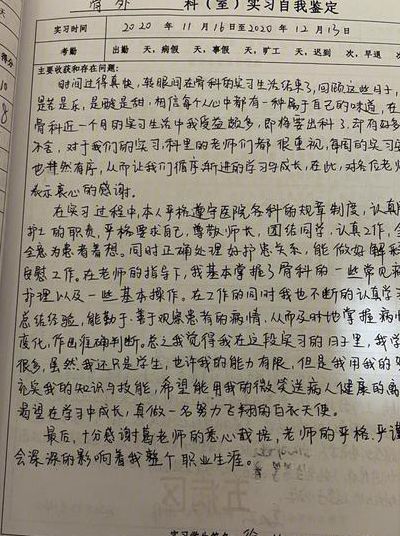 骨外 科（室）实习自我鉴定
实习时间 2020 年 11 月 16日至2020 年 12 月 13日
考勤 出勤 天，病假 天，事假 天，旷工 天，迟到 次，早退 次
主要收获和存在问题：
时间过得真快，转眼间在骨科的实习生活结束了，回顾这些日子，
是苦是乐，是酸是甜，相信每个人心中都有一种属于自己的味道，在
骨科近一个月的实习生活中我受益颇多，即将要出科了，却有好多
不舍，对于我们的实习，科里的老师们都很重视，每周的实习
也井然有序，从而让我们循序渐进的学习与成长，在此，对各位老
表示衷心的感谢。
在实习过程中，本人严格遵守医院各科的规章制度，认真
护士的职责，严格要求自己，尊敬师长，团结同学，认真工作，全
全意为患者着想。同时正确处理好护患关系，能做好解释
安慰工作。在老师的指导下，我基本掌握了骨科的一些常见
护理以及一些基本操作。在工作的同时我也不断的认真学习
总结经验，能勤于、善于观察患者的病情，从而及时地掌握病情
变化，作出准确判断。总之我觉得我在这段实习的日子里，我学
很多，虽然我还只是学生，也许我的能力有限，但是我用我的
充实我的知识与技能，希望能用我的微笑送病人健康的离
渴望在学习中成长，真做一名努力飞翔的白衣天使。
最后，十分感谢葛老师的悉心栽培，老师的严格、严谨
会深深的影响着我整个职业生涯。